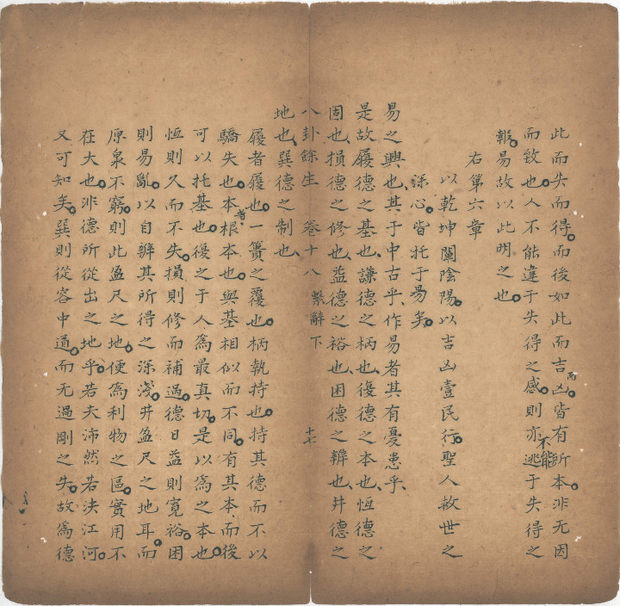 此而失而得而後如此而吉而凶皆有所本非无因
而致也人不能違于失得之感則亦不能逃于失得之
報易故以此明之也
右第六章
以乾坤闡陰陽以吉凶壹民行聖人救世之
深心皆托于易矣
易之興也其于中古乎作易者其有憂患乎
是故履德之基也謙德之柄也復德之本也恒德之
固也損德之修也益德之裕也困德之辨也井德之
地也巽德之制也
八卦餘生 卷十八 繫辭下 十七
履者履也一簣之覆也柄執持也持其德而不以
驕失也本者根本也與基相似而不同有其本而後
可以托基也復之于人為最真切是以為之本也
恒則久而不失損則修而補過德日益則寬裕困
則易亂以自辨其所得之深淺井盈尺之地耳而
原泉不窮則此盈尺之地便為利物之區實用不
在大也非德所從出之地乎若夫沛然若決江河
又可知矣巽則從容中道而无過剛之失故為德